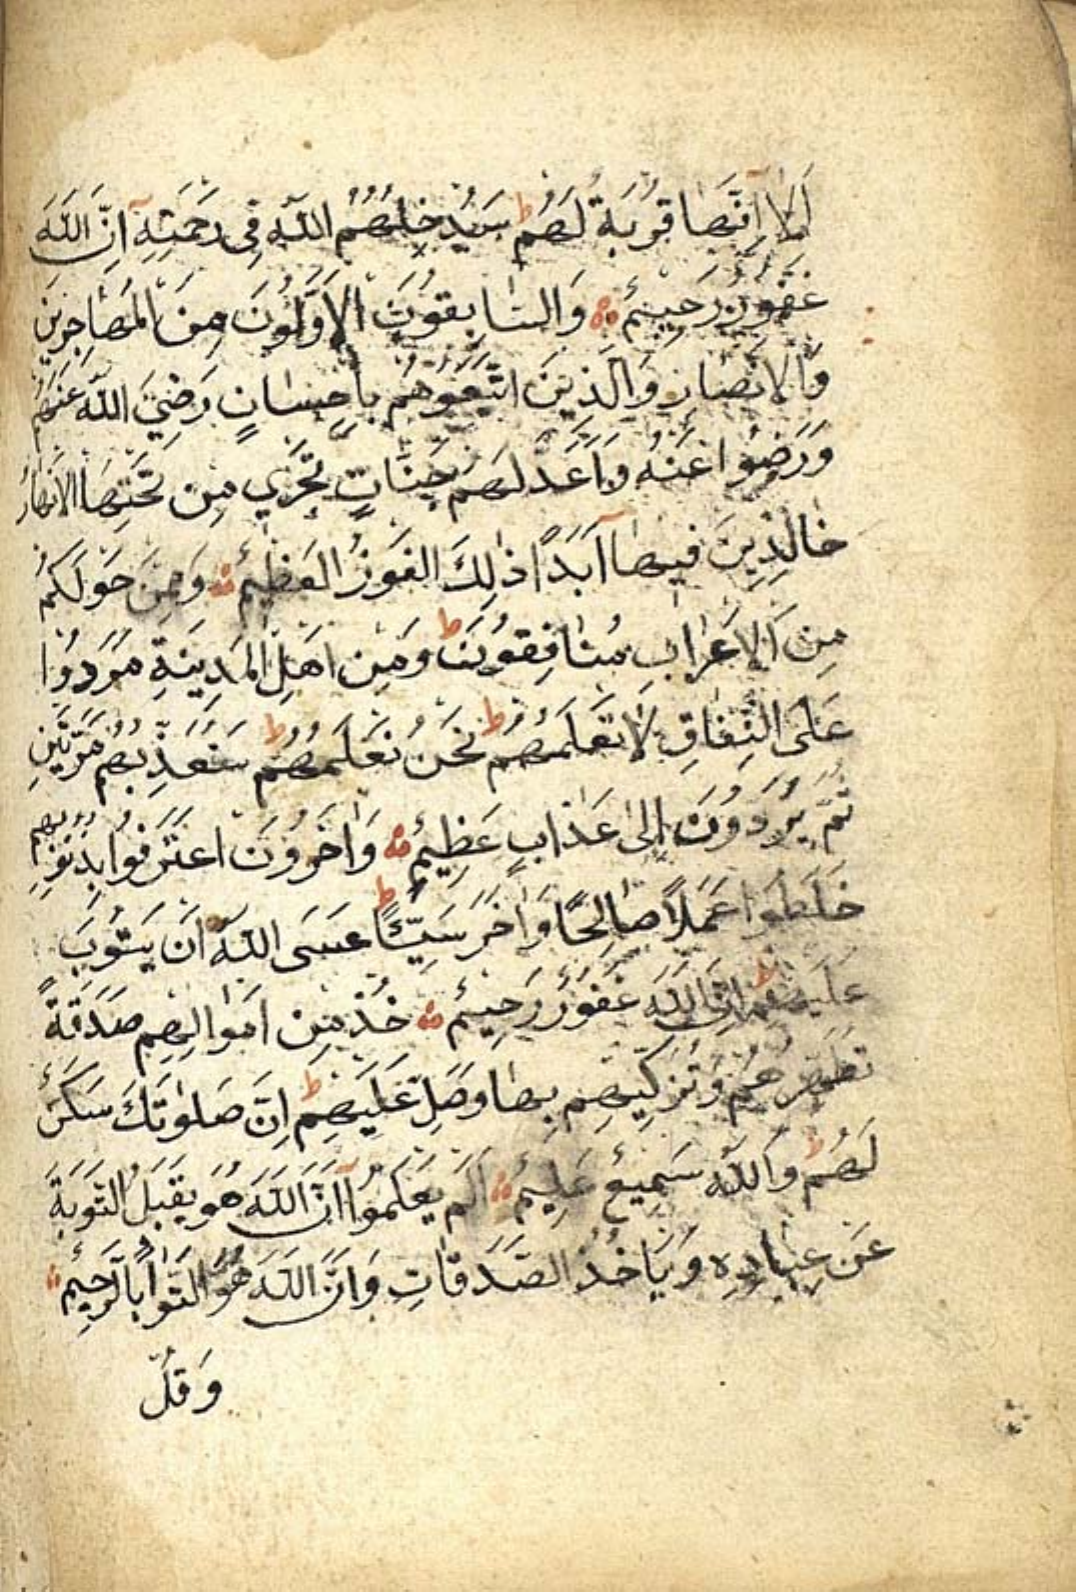 اَلَا اِنَّهَا قُرْبَةٌ لَهُمْ ط سَيُدْخِلُهُمُ اللّٰهُ فِى رَحْمَتِهِ اِنَّ اللّٰهَ
غَفُورٌ رَحِيمٌ وَالسَّابِقُونَ الْاَوَّلُونَ مِنَ الْمُهَاجِرِينَ
وَالْاَنْصَارِ وَالَّذِينَ اتَّبَعُوهُمْ بِاِحْسَانٍ رَضِيَ اللّٰهُ عَنْهُمْ
وَرَضُوا عَنْهُ وَاَعَدَّ لَهُمْ جَنَّاتٍ تَجْرِي مِنْ تَحْتِهَا الْاَنْهَارُ
خَالِدِينَ فِيهَا اَبَدًا ذٰلِكَ الْفَوْزُ الْعَظِيمُ وَمِمَّنْ حَوْلَكُمْ
مِنَ الْاَعْرَابِ مُنَافِقُونَ ط وَمِنْ اَهْلِ الْمَدِينَةِ مَرَدُوا
عَلَى النِّفَاقِ لَا تَعْلَمُهُمْ ط نَحْنُ نَعْلَمُهُمْ ط سَنُعَذِّبُهُمْ مَرَّتَيْنِ
ثُمَّ يُرَدُّونَ اِلٰى عَذَابٍ عَظِيمٍ وَاٰخَرُونَ اعْتَرَفُوا بِذُنُوبِهِمْ
خَلَطُوا عَمَلًا صَالِحًا وَاٰخَرَ سَيِّئًا ط عَسَى اللّٰهُ اَنْ يَتُوبَ
عَلَيْهِمْ ط اِنَّ اللّٰهَ غَفُورٌ رَحِيمٌ خُذْ مِنْ اَمْوَالِهِمْ صَدَقَةً
تُطَهِّرُهُمْ وَتُزَكِّيهِمْ بِهَا وَصَلِّ عَلَيْهِمْ ط اِنَّ صَلٰوتَكَ سَكَنٌ
لَهُمْ ط وَاللّٰهُ سَمِيعٌ عَلِيمٌ اَلَمْ يَعْلَمُوا اَنَّ اللّٰهَ هُوَ يَقْبَلُ التَّوْبَةَ
عَنْ عِبَادِهِ وَيَاْخُذُ الصَّدَقَاتِ وَاَنَّ اللّٰهَ هُوَ التَّوَّابُ الرَّحِيمُ
وَقُلْ